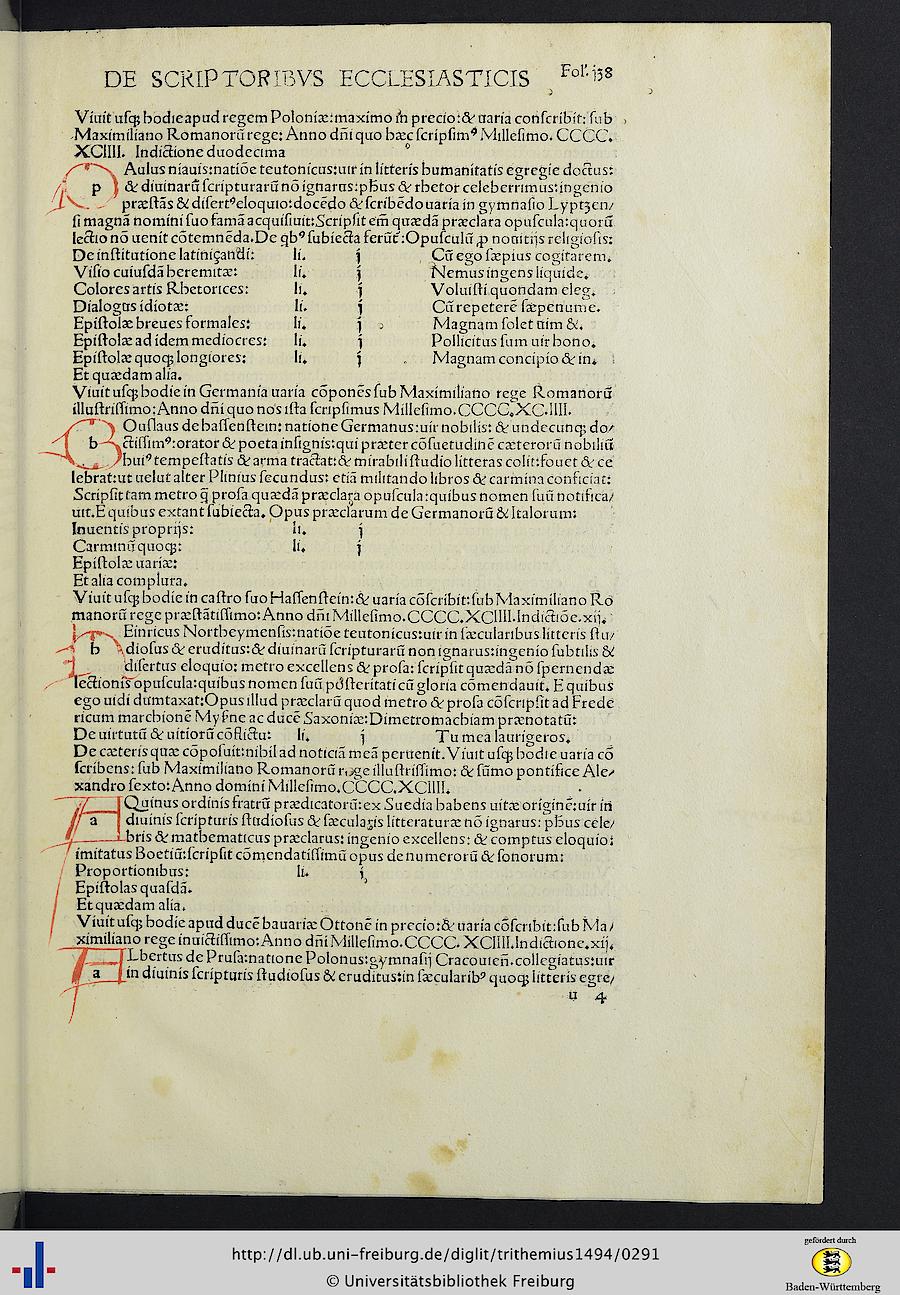 DE SCRIPTORIBVS ECCLESIASTICIS Fol'. j38
Viuit uſq; hodie apud regem Poloniæ: maximo in precio: & uaria conſcribit: ſub
Maximiliano Romanorū rege: Anno dñi quo hæc ſcripſimꝰ Milleſimo. CCCC.
XCIIII. Indictione duodecima
p Aulus niauis: natiōe teutonicus: uir in litteris humanitatis egregie doctus:
& diuinarū ſcripturarū nō ignarus: phūs & rhetor celeberrimus: ingenio
præſtās & diſertꝰ eloquio: docēdo & ſcribēdo uaria in gymnaſio Lyptzen/
ſi magnā nomini ſuo famā acquiſiuit: Scripſit em̄ quædā præclara opuſcula: quorū
lectio nō uenit cōtemnēda. De qbꝰ ſubiecta ferūt̄: Opuſculū ꝓ nouitijs religioſis:
De inſtitutione latiniçandi: li. j Cū ego ſæpius cogitarem.
Viſio cuiuſdā heremitæ: li. j Nemus ingens liquide.
Colores artis Rhetorices: li. j Voluiſti quondam eleg.
Dialogus idiotæ: li. j Cū repeterē ſæpenume.
Epiſtolæ breues formales: li. j Magnam ſolet uim &.
Epiſtolæ ad idem mediocres: li. j Pollicitus ſum uir bono.
Epiſtolæ quoq; longiores: li. j Magnam concipio & in.
Et quædam alia.
Viuit uſq; hodie in Germania uaria cōponēs ſub Maximiliano rege Romanorū
illuſtriſſimo: Anno dñi quo nos iſta ſcripſimus Milleſimo. CCCC. XC. IIII.
b Ouſlaus de haſſenſtein: natione Germanus: uir nobilis: & undecunq; do/
ctiſſimꝰ: orator & poeta inſignis: qui præter cōſuetudinē cæterorū nobiliū
huiꝰ tempeſtatis & arma tractat: & mirabili ſtudio litteras colit: fouet & ce
lebrat: ut uelut alter Plinius ſecundus: etiā militando libros & carmina conficiat:
Scripſit tam metro q̄ proſa quædā præclara opuſcula: quibus nomen ſuū notifica/
uit. E quibus extant ſubiecta. Opus præclarum de Germanorū & Italorum:
Inuentis proprijs: li. j
Carminū quoq;: li. j
Epiſtolæ uariæ:
Et alia complura.
Viuit uſq; hodie in caſtro ſuo Haſſenſtein: & uaria cōſcribit: ſub Maximiliano Ro
manorū rege præſtātiſſimo: Anno dñi Milleſimo. CCCC. XCIIII. Indictiōe. xij.
h Einricus Northeymenſis: natiōe teutonicus: uir in ſæcularibus litteris ſtu/
dioſus & eruditus: & diuinarū ſcripturarū non ignarus: ingenio ſubtilis &
diſertus eloquio: metro excellens & proſa: ſcripſit quædā nō ſpernendæ
lectionis opuſcula: quibus nomen ſuū poſteritati cū gloria cōmendauit. E quibus
ego uidi dumtaxat: Opus illud præclarū quod metro & proſa cōſcripſit ad Frede
ricum marchionē Myſne ac ducē Saxoniæ: Dimetromachiam prænotatū:
De uirtutū & uitiorū cōflictu: li. j Tu mea laurigeros.
De cæteris quæ cōpoſuit: nihil ad noticiā meā peruenit. Viuit uſq; hodie uaria cō
ſcribens: ſub Maximiliano Romanorū rege illuſtriſſimo: & ſūmo pontifice Ale/
xandro ſexto: Anno domini Milleſimo. CCCC. XCIIII.
a Quinus ordinis fratrū prædicatorū: ex Suedia habens uitæ originē: uir in
diuinis ſcripturis ſtudioſus & ſæcularis litteraturæ nō ignarus: phūs cele/
bris & mathematicus præclarus: ingenio excellens: & comptus eloquio:
imitatus Boetiū: ſcripſit cōmendatiſſimū opus de numerorū & ſonorum:
Proportionibus: li. j
Epiſtolas quaſdā.
Et quædam alia.
Viuit uſq; hodie apud ducē bauariæ Ottonē in precio: & uaria cōſcribit: ſub Ma/
ximiliano rege inuictiſſimo: Anno dñi Milleſimo. CCCC. XCIIII. Indictione. xij.
a Lbertus de Pruſa: natione Polonus: gymnaſij Cracouień. collegiatus: uir
in diuinis ſcripturis ſtudioſus & eruditus: in ſæcularibꝰ quoq; litteris egre/
u 4
http://dl.ub.uni-freiburg.de/diglit/trithemius1494/0291
© Universitätsbibliothek Freiburg
gefördert durch
Baden-Württemberg